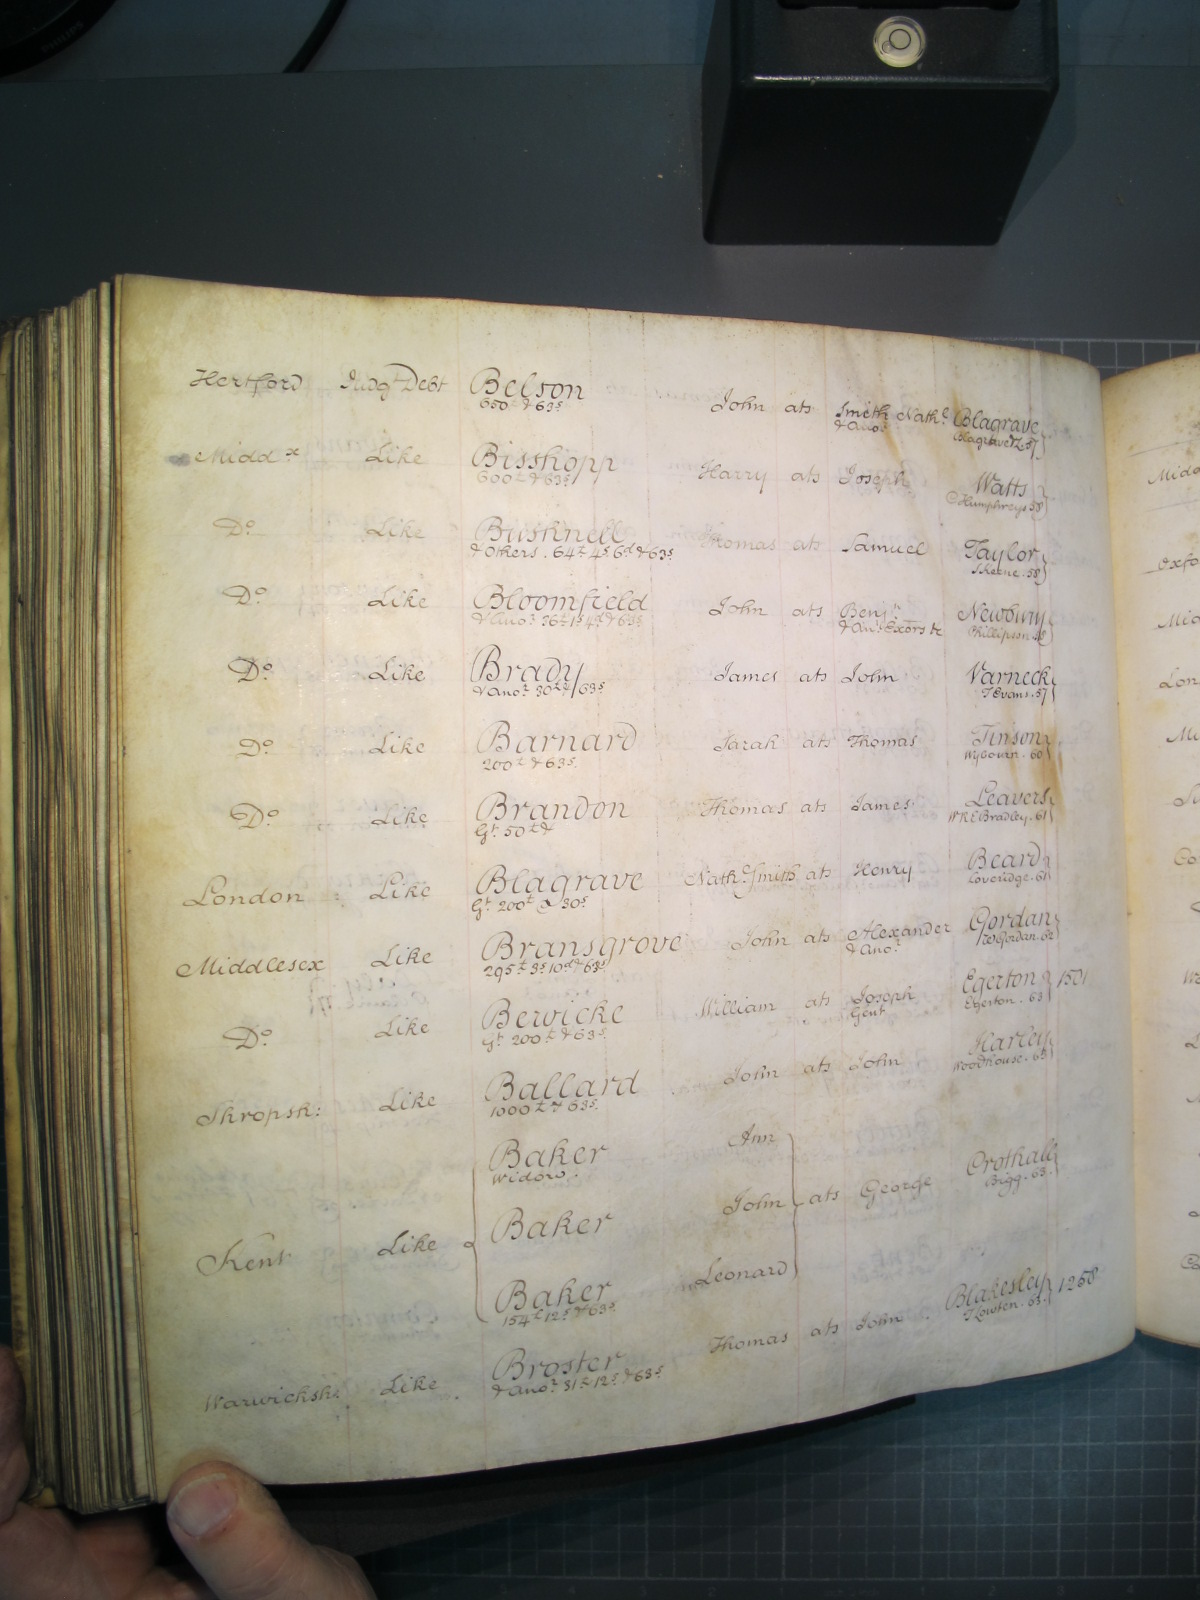 Hertford Judgt Debt Belson John ats Smith Nathl Blagrave
650£ & 63s & Anor Blagrave & Z. 57
Middx Like Bisshopp Harry ats Joseph Watts
600£ & 63s C Humphreys 58
Do Like Bushnell Thomas ats Samuel Taylor
& Others . 64£ 4s 6d & 63s Skeene . 58
Do Like Bloomfield John ats Benjn Newbury
& Anor 26£ 1s 4d & 63s & Anr Exors &c Phillipson 48
Do Like Brady James ats John Varneck
& Anor 30££ / 63s T Evans . 57
Do Like Barnard Sarah ats Thomas Tinson
200£ & 63s Wybourn . 60
Do Like Brandon Thomas ats James Leavers
Gt 50£ & W R E Bradley . 61
London Like Blagrave Nathl Smith ats Henry Beard
Gt 200£ & 30s Loveridge . 61
Middlesex Like Bransgrove John ats Alexander Gordan
295£ 3s 10d & 63s & Anor W Gordan . 62
Do Like Bewicke William ats Joseph Egerton 1501
Gt 200£ & 63s Gent Egerton . 63
Shropsh: Like Ballard John ats John Harley
1000£ & 63s Woodhouse . 63
Baker Ann
Widow .
Kent Like Baker John ats George Crothall
Bigg . 63
Baker Leonard
154£ 12s & 63s
Warwicksh: Like Broster Thomas ats John Blakesley 1268
& Anor 31£ 12s & 63s T Lowten . 63